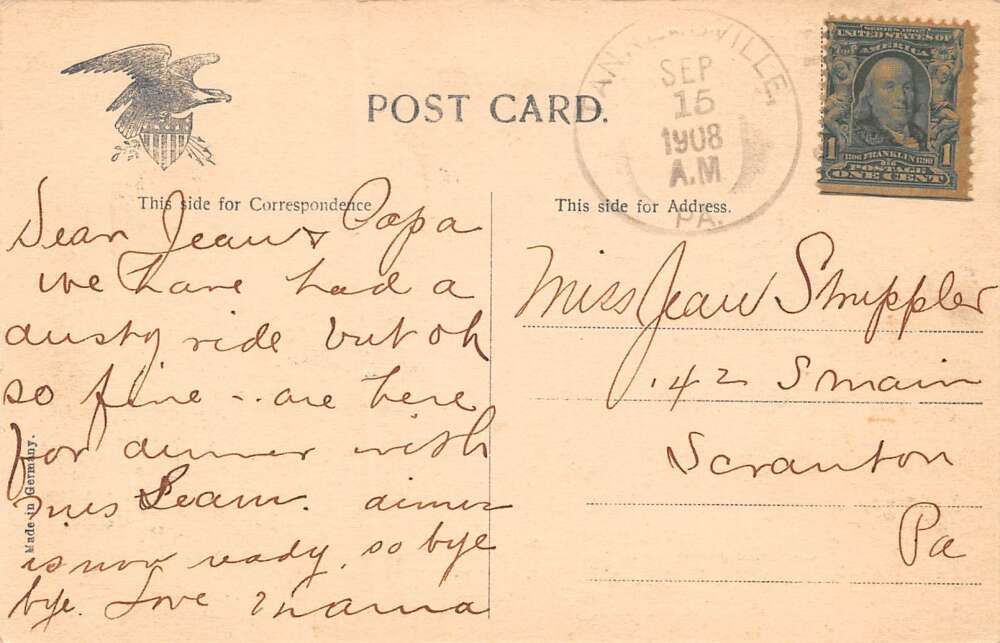 POST CARD.
TANNERSVILLE,
SEP
15
1908
A.M
PA.
SERIES 1902
UNITED STATES OF
AMERICA
1 1
1706 FRANKLIN 1790
POSTAGE
ONE CENT
This side for Correspondence
Dear Jean & Papa
we have had a
dusty ride but oh
so fine - . are here
for dinner with
Mrs Leam. dinner
is now ready, so bye
bye. Love Mama
Made in Germany.
This side for Address.
Miss Jean Shuppler
142 S main
Scranton
Pa